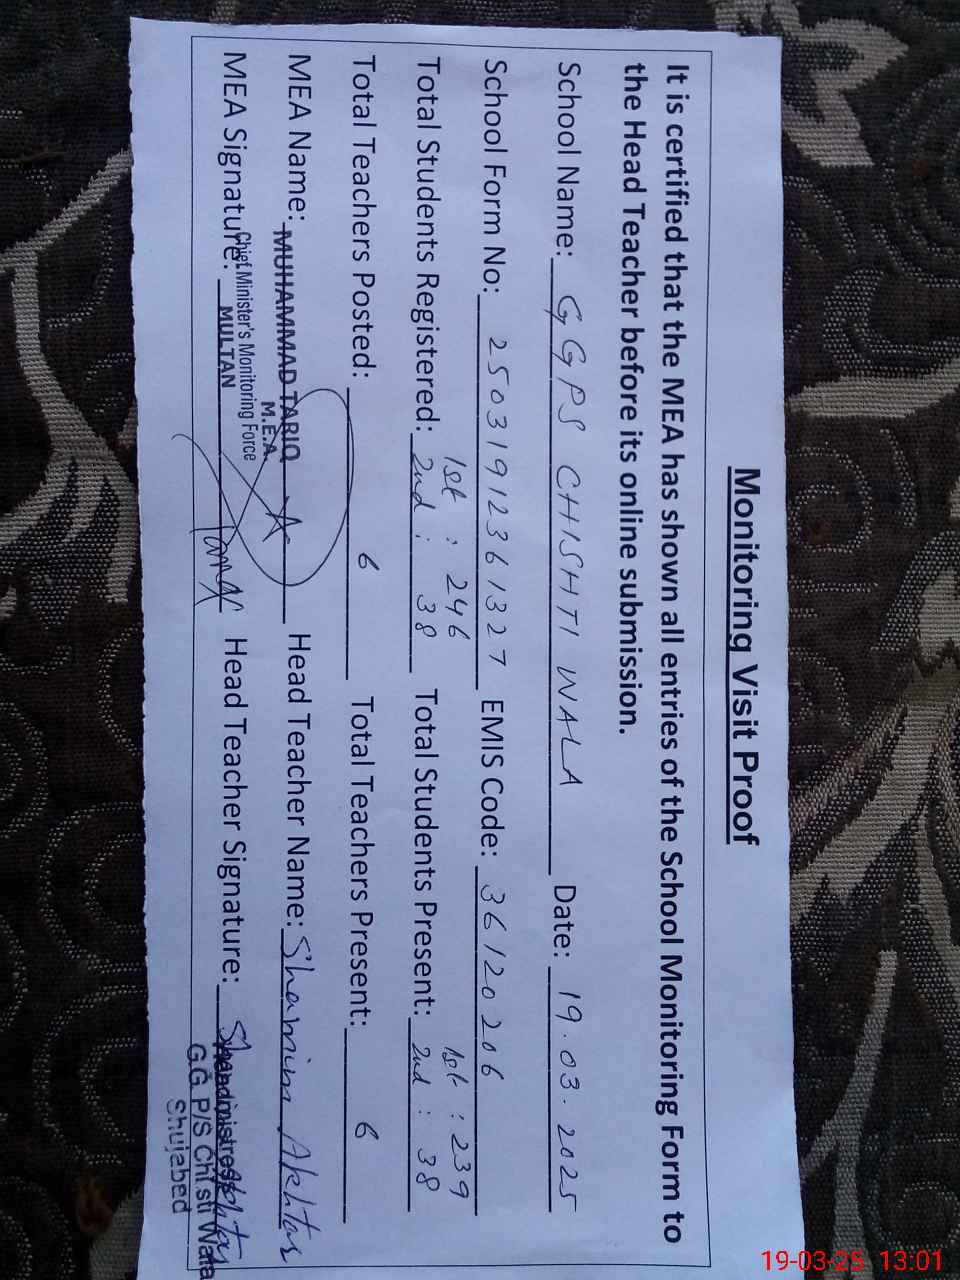 Monitoring Visit Proof
It is certified that the MEA has shown all entries of the School Monitoring Form to
the Head Teacher before its online submission.
School Name: GGPS CHISHTI WALA Date: 19.03.2025
School Form No: 25031912361327 EMIS Code: 36120206
Total Students Registered: 1st : 246 2nd : 38 Total Students Present: 1st : 239 2nd : 38
Total Teachers Posted: 6 Total Teachers Present: 6
MEA Name: MUHAMMAD TARIQ Head Teacher Name: Shamim Akhtar
M.E.A
Chief Minister's Monitoring Force
MEA Signature: MULTAN Head Teacher Signature: Headmistress
G.G P/S Chisti Wala
Shujabad
19-03-25 13:01